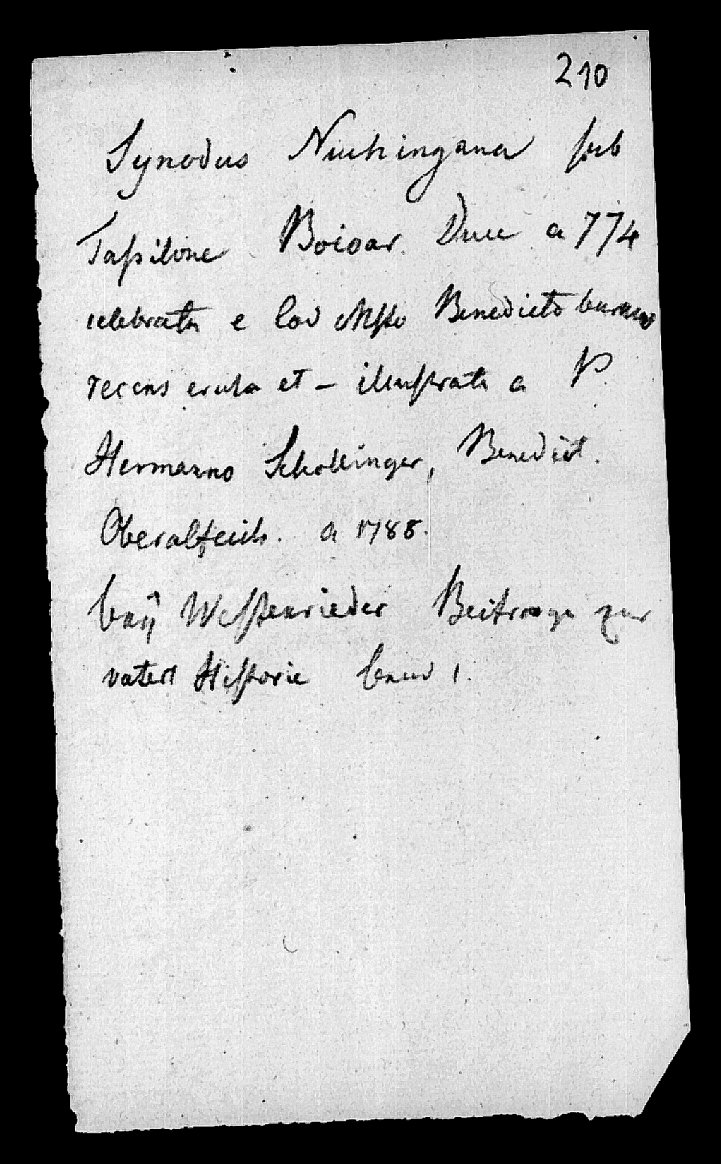 210
Synodus Niuhingana sub
Taſsilone Boioar. Duce a 774
celebrata e Cod Mſpto Benedicto burano
recens eruta et – illuſtrata a P.
Hermanno Schollinger, Benedict.
Oberalteich. a 1788.
baÿ Weſtenrieder Beitrage zur
vaterl Hiſtorie band 1.